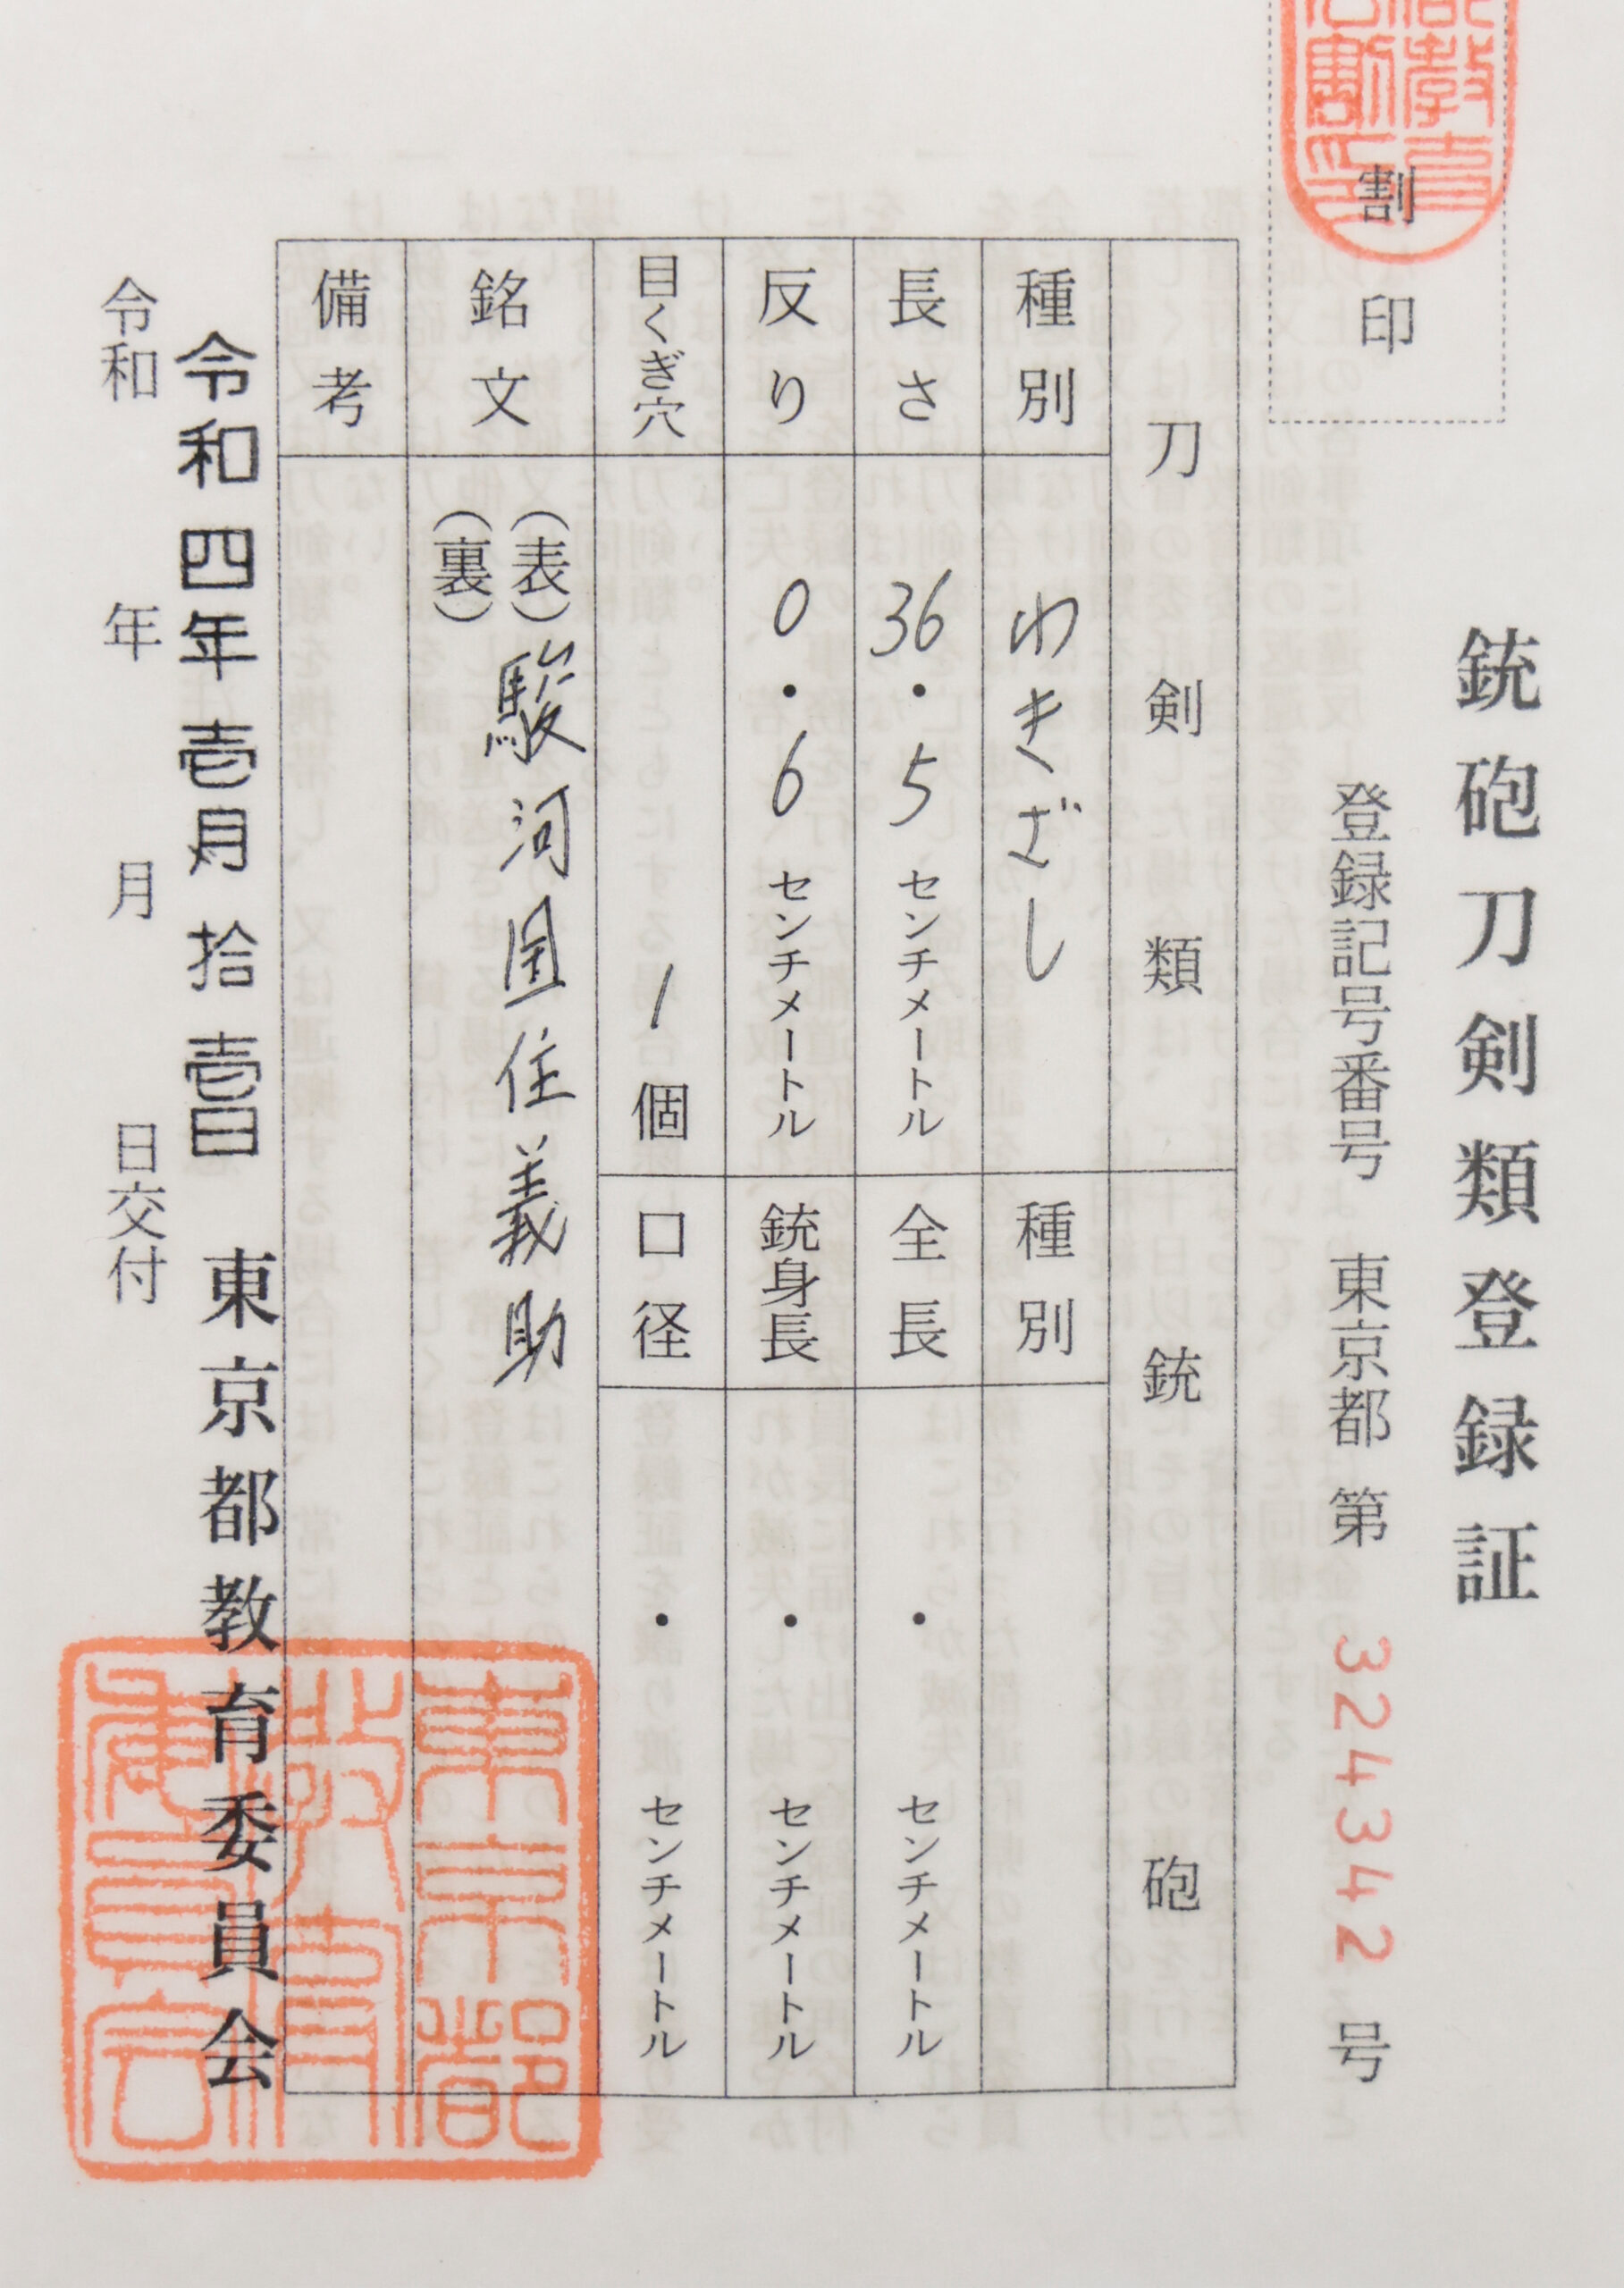 銃砲刀剣類登録証
登録記号番号 東京都 第 324342 号
割印
刀剣類 銃砲
種別 わきざし 種別
長さ 36・5 センチメートル 全長 ・ センチメートル
反り 0・6 センチメートル 銃身長 ・ センチメートル
目くぎ穴 1 個 口径 ・ センチメートル
銘文 (表) 駿河国住義助
(裏)
備考
令和四年壱月拾壱日 東京都教育委員会
令和 年 月 日交付